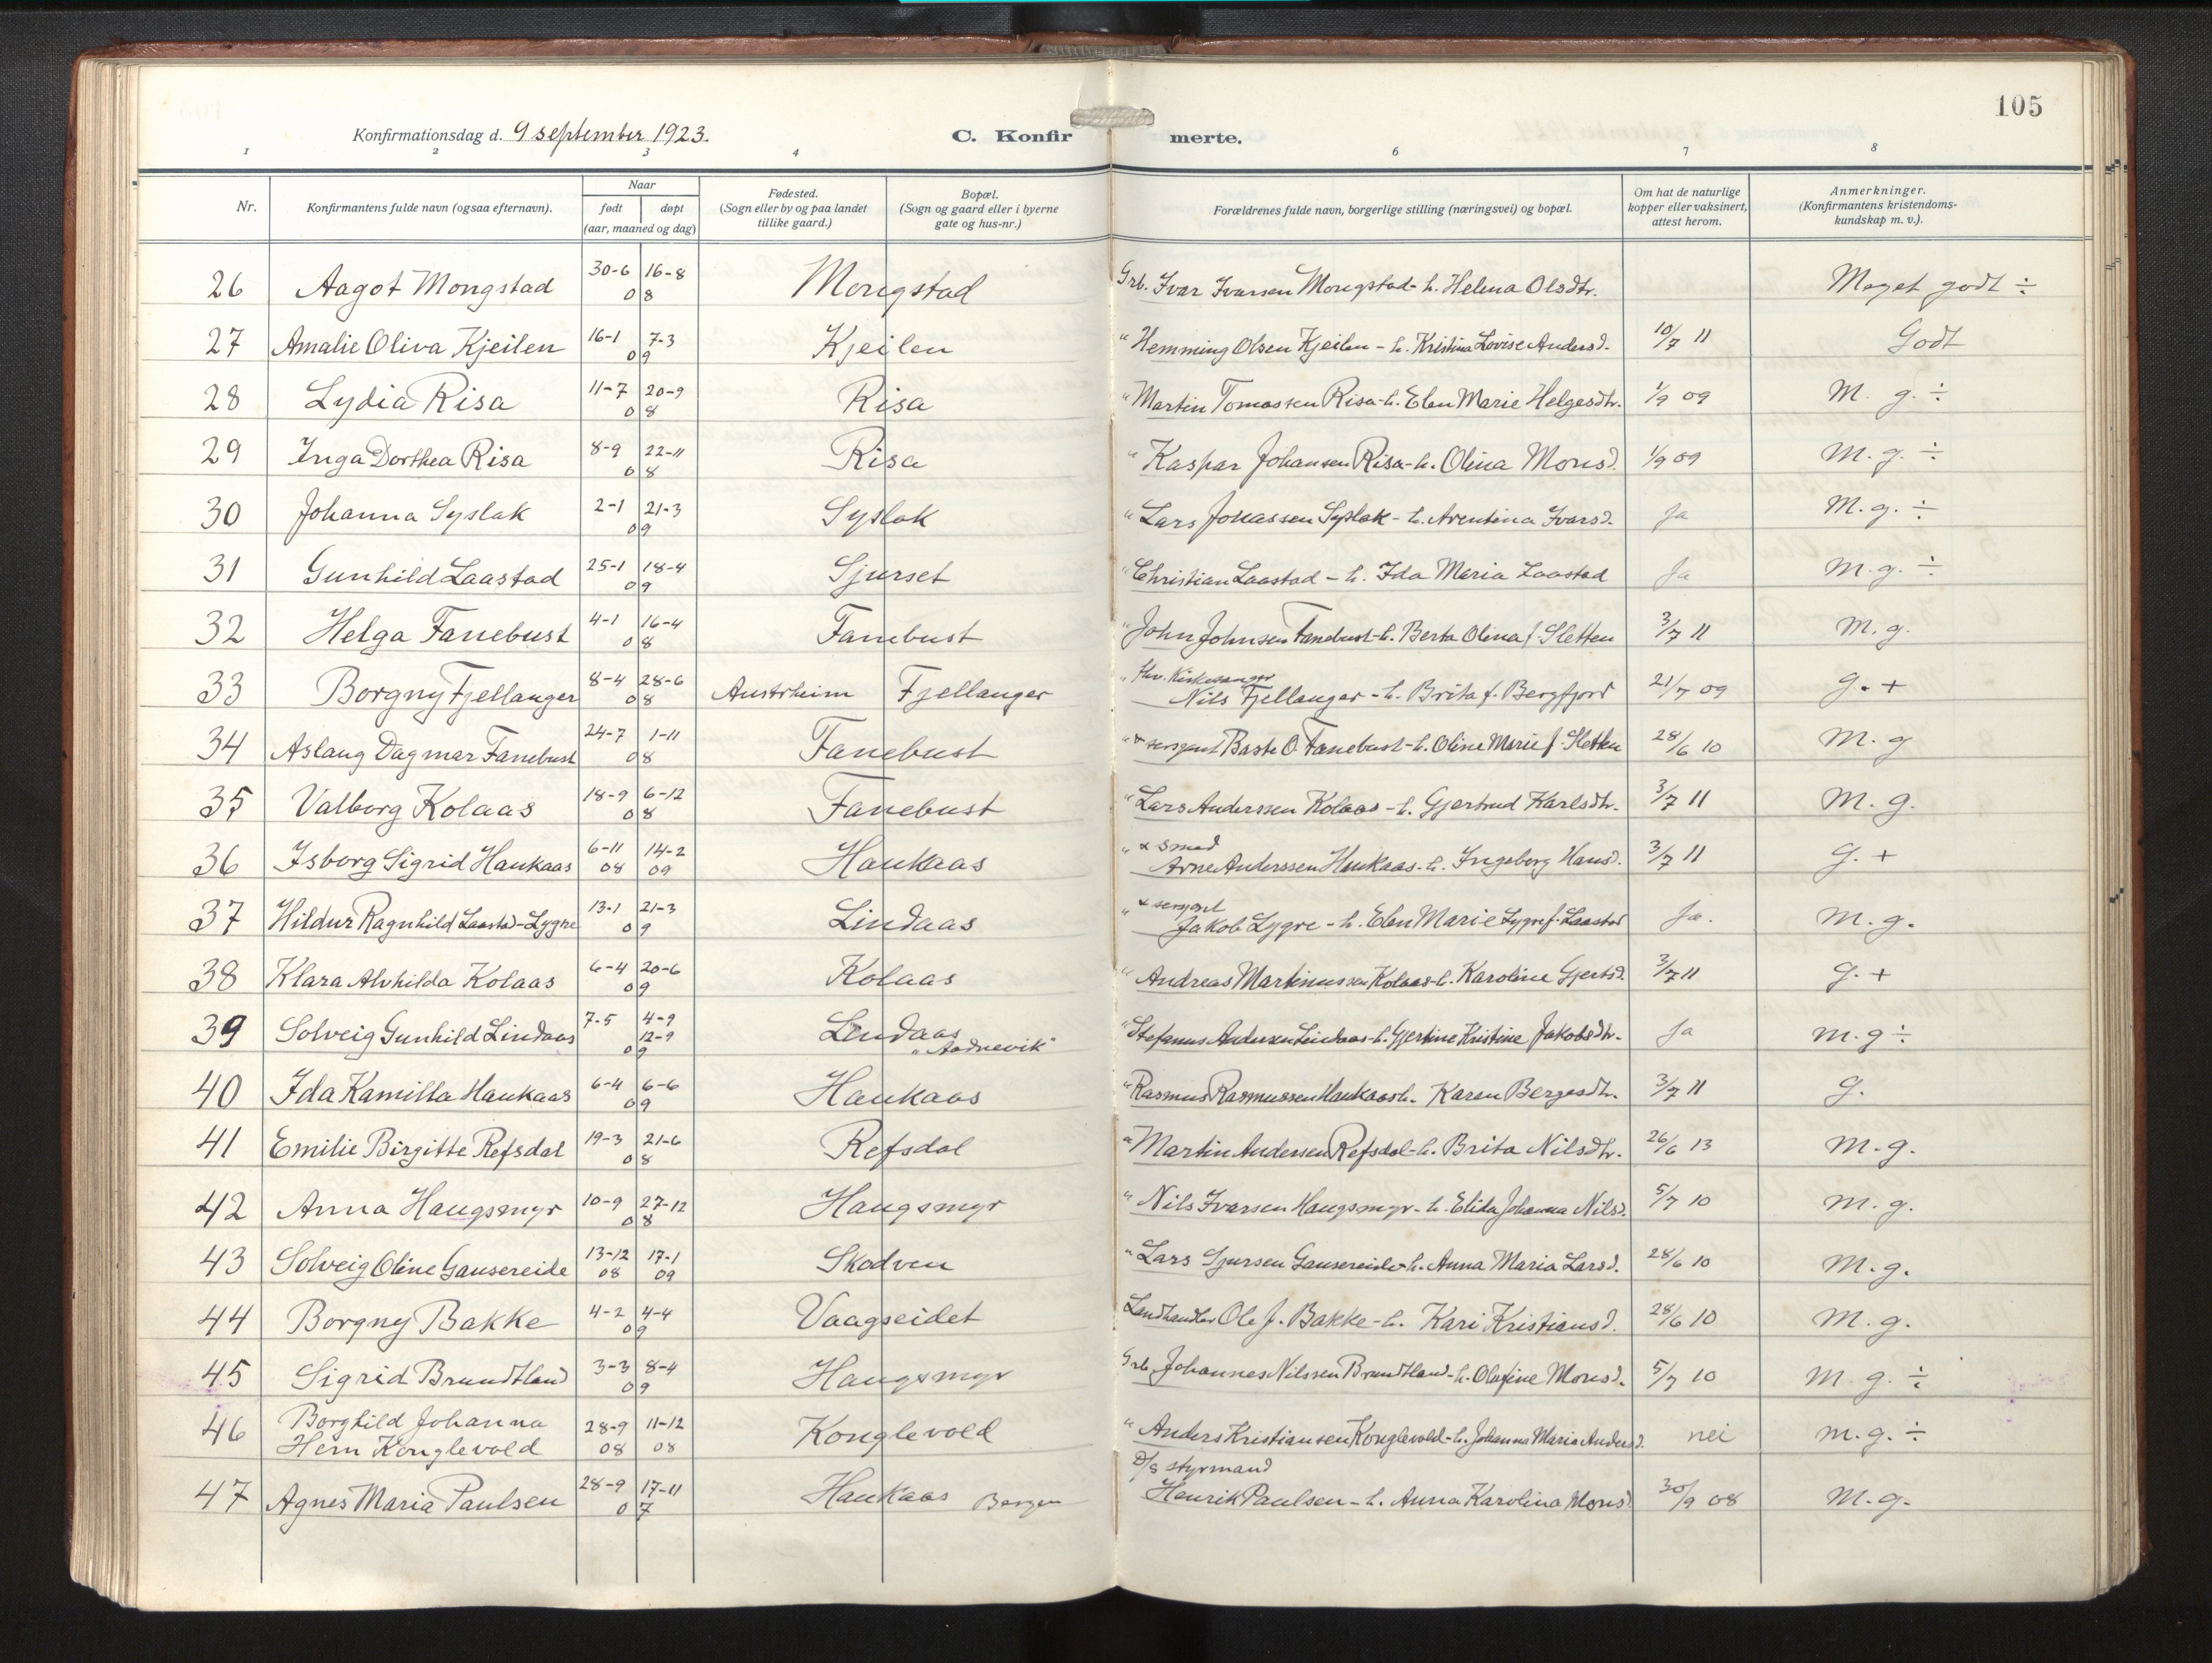 105
Konfirmationsdag d. 9 september 1923.
C. Konfir merte.
1 2 3 4 6 7 8
Nr.
Konfirmantens fulde navn (ogsaa efternavn).
Naar
født døpt
(aar, maaned og dag)
Fødested.
(Sogn eller by og paa landet
tillike gaard.)
Bopæl.
(Sogn og gaard eller i byerne
gate og hus-nr.)
Forældrenes fulde navn, borgerlige stilling (næringsvei) og bopæl.
Om hat de naturlige
kopper eller vaksinert,
attest herom.
Anmerkninger.
(Konfirmantens kristendoms-
kundskap m. v.).
26 Aagot Mongstad 30-6 16-8 08 Mongstad Grb. Ivar Ivarsen Mongstad - h. Helena Olsdtr. Meget godt ÷
27 Amalie Oliva Kjeilen 16-1 7-3 09 Kjeilen " Hemming Olsen Kjeilen - h. Kristina Lovise Andersd. 10/7 11 Godt
28 Lydia Risa 11-7 20-9 08 Risa " Martin Tomassen Risa - h. Elen Marie Helgesdtr. 1/9 09 M. g. ÷
29 Inga Dorthea Risa 8-9 22-11 08 Risa " Kaspar Johansen Risa - h. Olina Monsd. 1/9 09 M. g. ÷
30 Johanna Syslak 2-1 21-3 09 Syslak " Lars Jonassen Syslak - h. Arentina Ivarsd. Ja M. g. ÷
31 Gunhild Laastad 25-1 18-4 09 Sjurset " Christian Laastad - h. Ida Maria Laastad Ja M. g. ÷
32 Helga Fanebust 4-1 16-4 08 Fanebust " John Johnsen Fanebust - h. Berta Olina f. Sletten 3/7 11 M. g.
33 Borgny Fjellanger 8-4 28-6 08 Austrheim Fjellanger " Kirkesanger
Nils Fjellanger - h. Brita f. Bergfjord 21/7 09 g. +
34 Aslaug Dagmar Fanebust 24-7 1-11 08 Fanebust " & sersjant Baste O. Fanebust - h. Oline Marie f. Sletten 28/6 10 M. g
35 Valborg Kolaas 18-9 6-12 08 Fanebust " Lars Anderssen Kolaas - h. Gjertrud Karlsdtr. 3/7 11 M. g.
36 Isborg Sigrid Haukaas 6-11 14-2 08 09 Haukaas " & smed
Arne Anderssen Haukaas - h. Ingeborg Hansd. 3/7 11 G. +
37 Hildur Ragnhild Laastad-Lygre 13-1 21-3 09 Lindaas " & sersjant
Jakob Lygre - h. Elen Marie Lygre f. Laastad Ja. M. g.
38 Klara Alvhilda Kolaas 6-4 20-6 09 Kolaas " Andreas Martinussen Kolaas - h. Karoline Gjertsd. 3/7 11 G. +
39 Solveig Gunhild Lindaas 7-5 4-9 12-9 09 Lindaas "Aadnevik" " Stefanus Andersen Lindaas - h. Gjertine Kristine Jakobsdtr. Ja M. g ÷
40 Ida Kamilla Haukaas 6-4 6-6 09 Haukaas " Rasmus Rasmussen Haukaas - h. Karen Bergesdtr. 3/7 11 G.
41 Emilie Birgitte Refsdal 19-3 21-6 08 Refsdal " Martin Andersen Refsdal - h. Brita Nilsdtr. 26/6 13 M. g.
42 Anna Haugsmyr 10-9 27-12 08 Haugsmyr " Nils Ivarsen Haugsmyr - h. Elida Johanna Nilsd. 5/7 10 M. g.
43 Solveig Oline Gausereide 13-12 17-1 08 09 Skodven " Lars Sjursen Gausereide - h. Anna Maria Larsd. 28/6 10 M. g.
44 Borgny Bakke 4-2 4-4 09 Vaagseidet Landhandler Ole J. Bakke - h. Kari Kristiansd. 28/6 10 M. g.
45 Sigrid Brundtland 3-3 8-4 09 Haugsmyr Grb. Johannes Nilssen Brundtland - h. Olufine Monsd. 5/7 10 M. g. ÷
46 Borghild Johanna
Hern Konglevold 28-9 11-12 08 08 Konglevold " Anders Kristiansen Konglevold - h. Johanna Maria Andersd. nei M. g. ÷
47 Agnes Maria Paulsen 28-9 17-11 07 Haukaas Bergen D/S styrmand
Henrik Paulsen - h. Anna Karolina Monsd. 30/9 08 M. g.